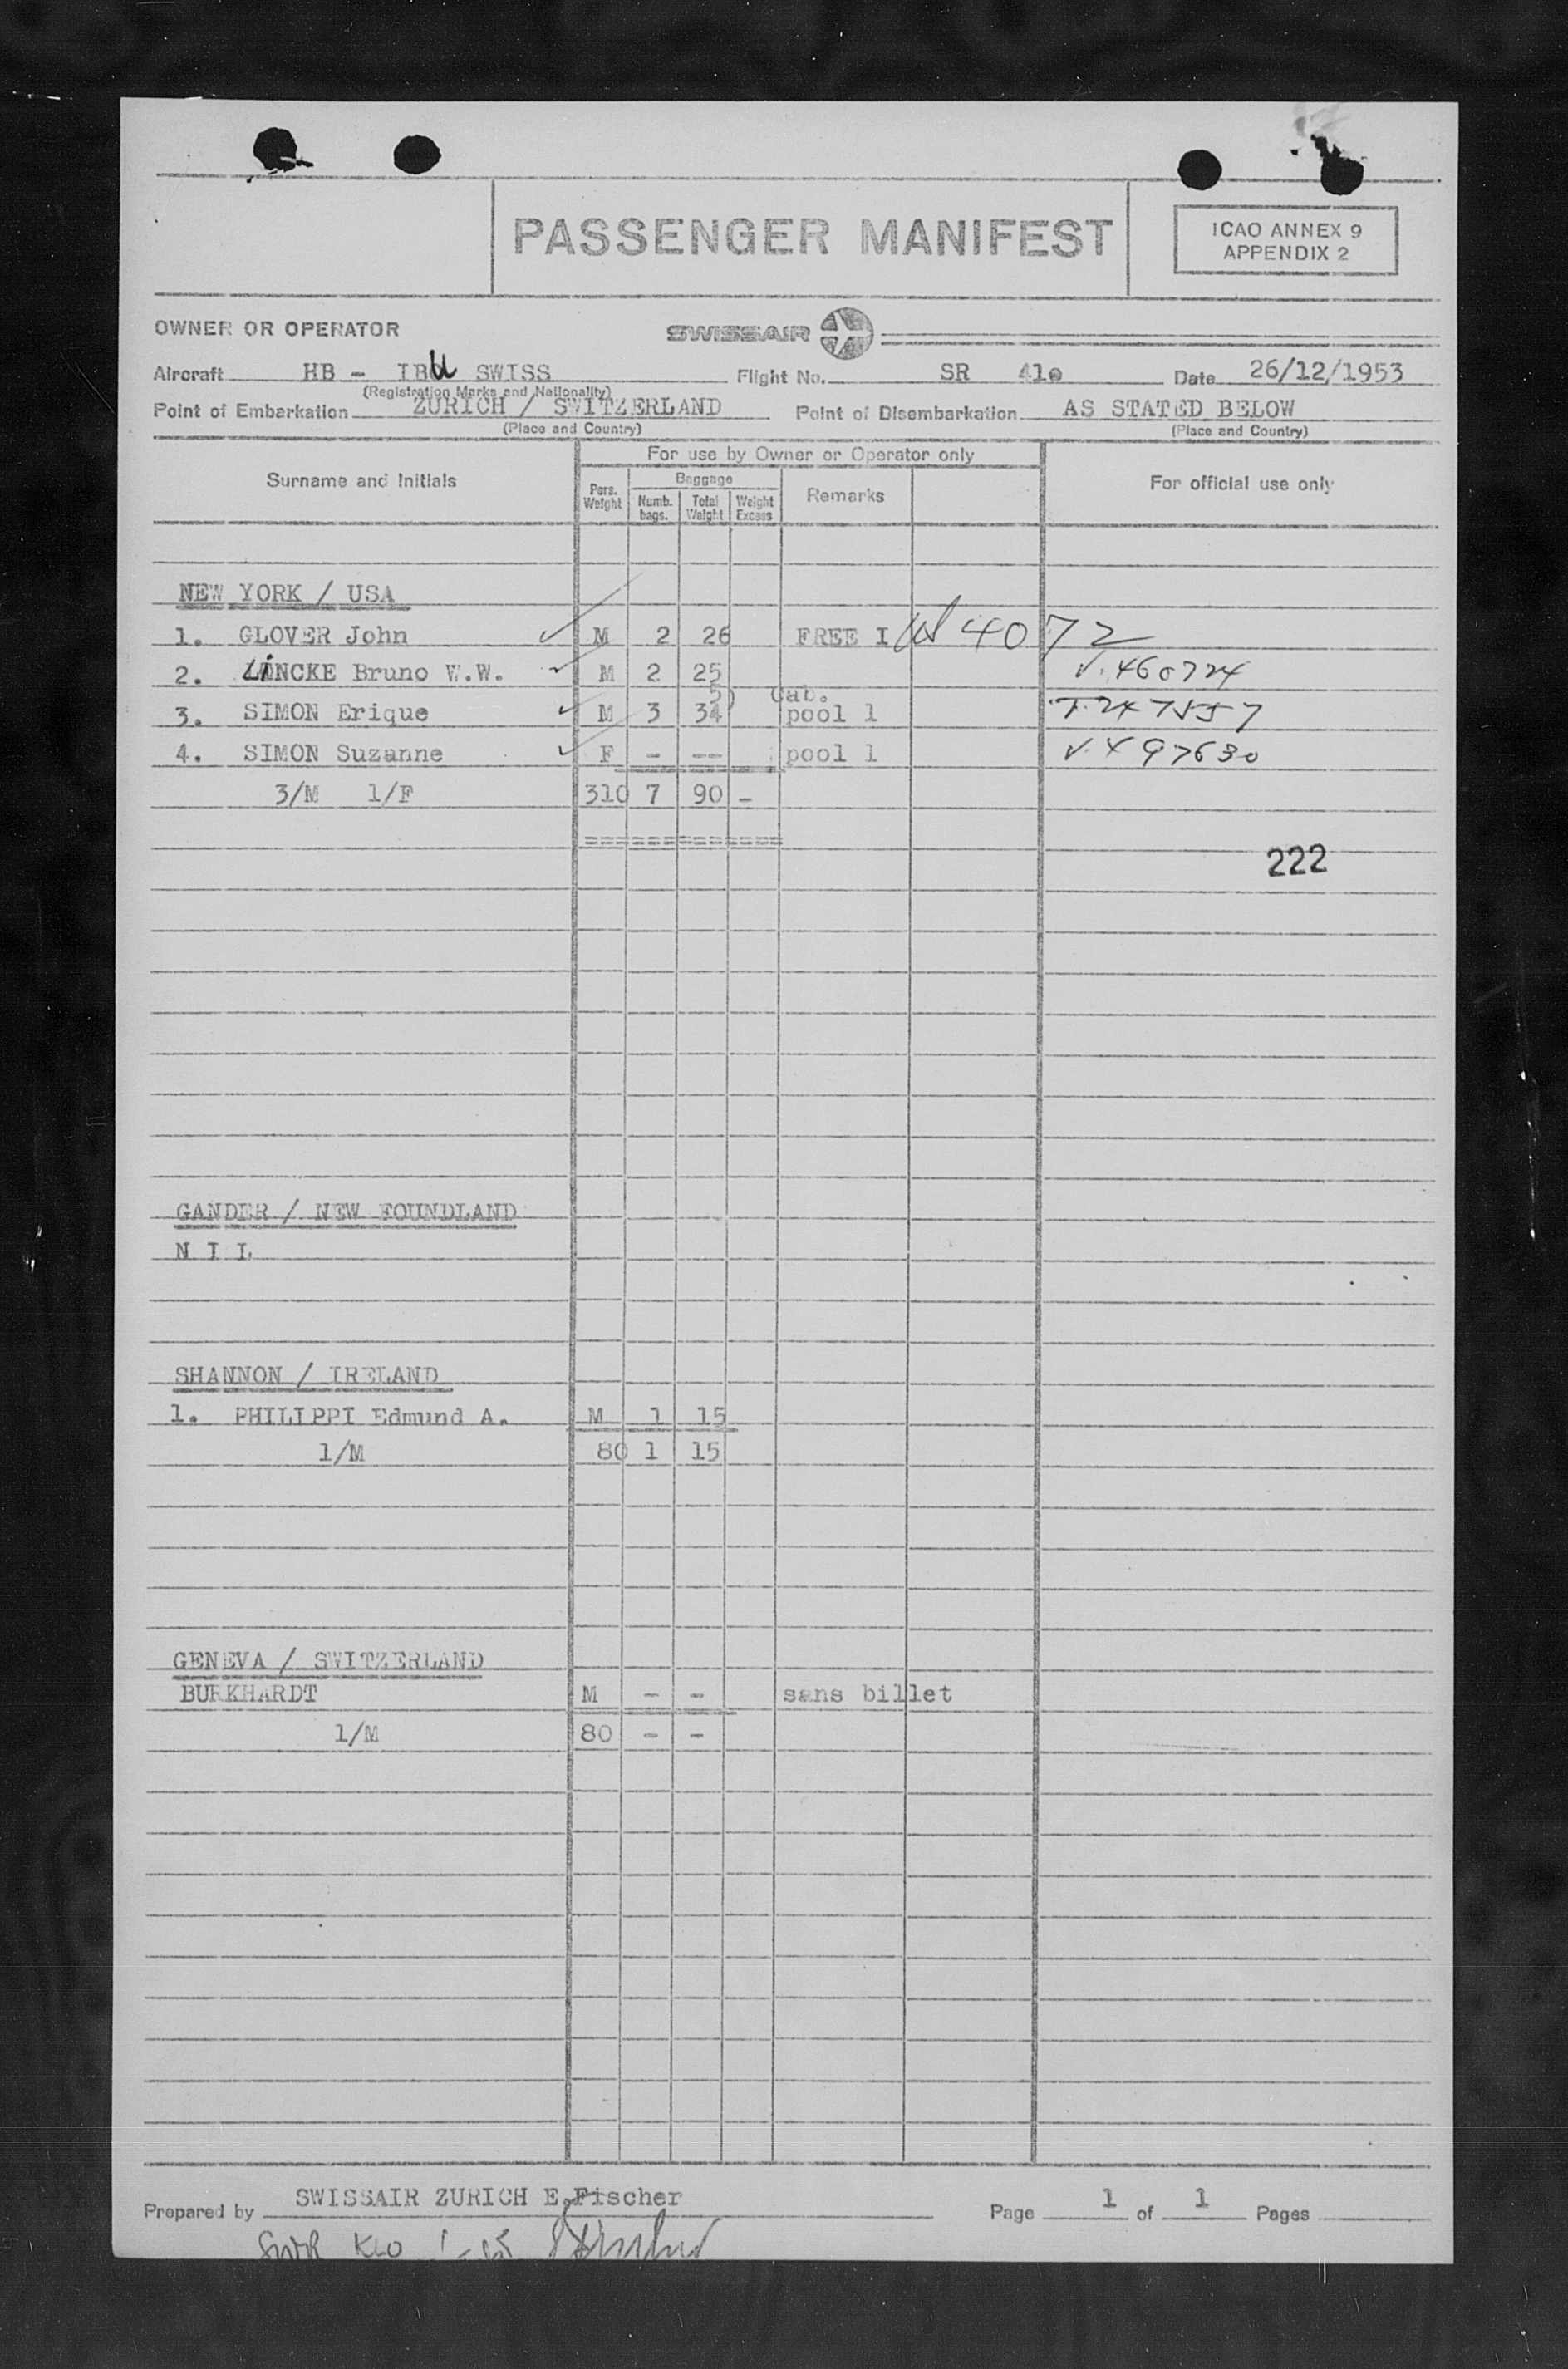 PASSENGER MANIFEST
ICAO ANNEX 9
APPENDIX 2
OWNER OR OPERATOR SWISSAIR
Aircraft HB - IBU SWISS Flight No. SR 41o Date 26/12/1953
(Registration Marks and Nationality)
Point of Embarkation ZURICH / SWITZERLAND Point of Disembarkation AS STATED BELOW
(Place and Country) (Place and Country)
For use by Owner or Operator only
Surname and Initials Pers. Weight Baggage Numb. bags. Total Weight Weight Excess Remarks For official use only
NEW YORK / USA
1. GLOVER John M 2 26 FREE I W 4072
2. LiNCKE Bruno W.W. M 2 25 V. 460724
5) Cab.
3. SIMON Erique M 3 34 pool 1
4. SIMON Suzanne F - -- pool 1 V. 497630
3/M 1/F 310 7 90 -
=============
222
GANDER / NEW FOUNDLAND
N I L
SHANNON / IRELAND
1. PHILIPPI Edmund A. M 1 15
1/M 80 1 15
GENEVA / SWITZERLAND
BURKHARDT M - - sans billet
1/M 80 - -
Prepared by SWISSAIR ZURICH E.Fischer Page 1 of 1 Pages